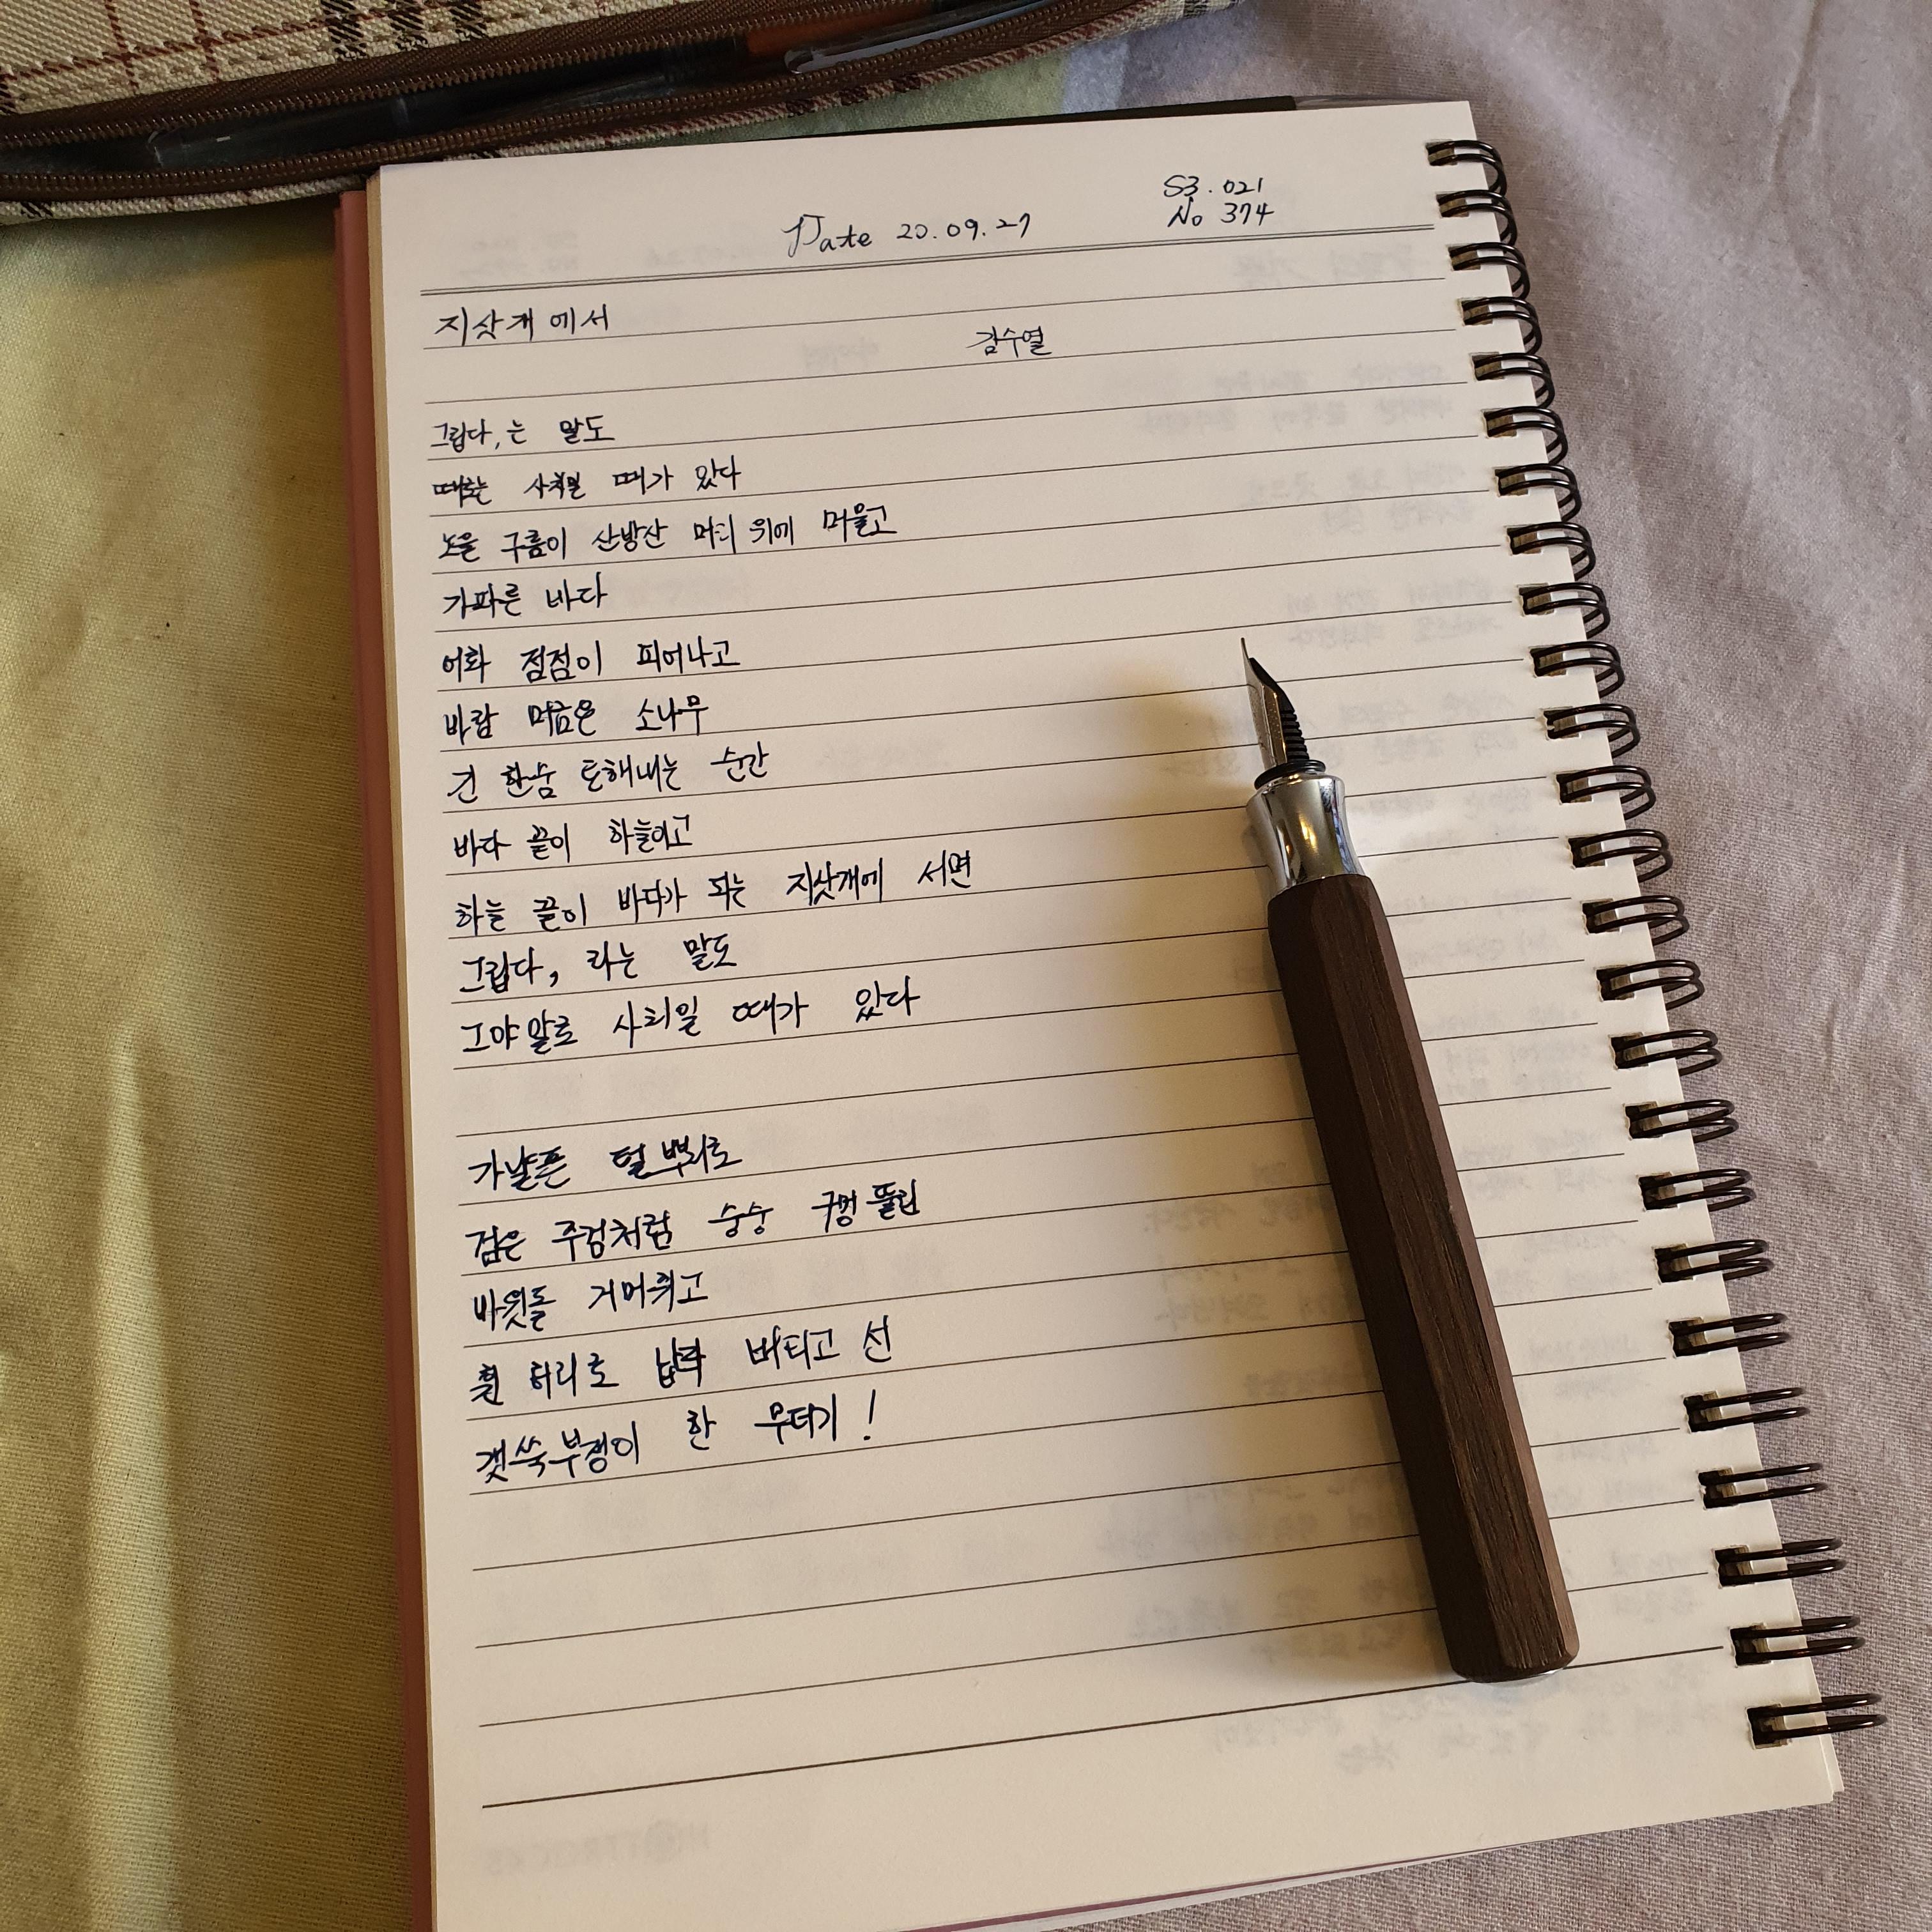 Date 20.09.27
S3.021
No 374
지삿개에서
김수열
그립다, 는 말도
때로는 사치일 때가 있다
노을 구름이 산방산 머리 위에 머물고
가파른 바다
어화 점점이 피어나고
바람 머금은 소나무
긴 한숨 토해내는 순간
바다 끝이 하늘이고
하늘 끝이 바다가 되는 지삿개에 서면
그립다, 라는 말도
그야말로 사치일 때가 있다
가냘픈 털뿌리로
검은 주검처럼 숭숭 구멍 뚫린
바윗돌 거머쥐고
휜 허리로 납작 버티고 선
갯쑥부쟁이 한 무더기!